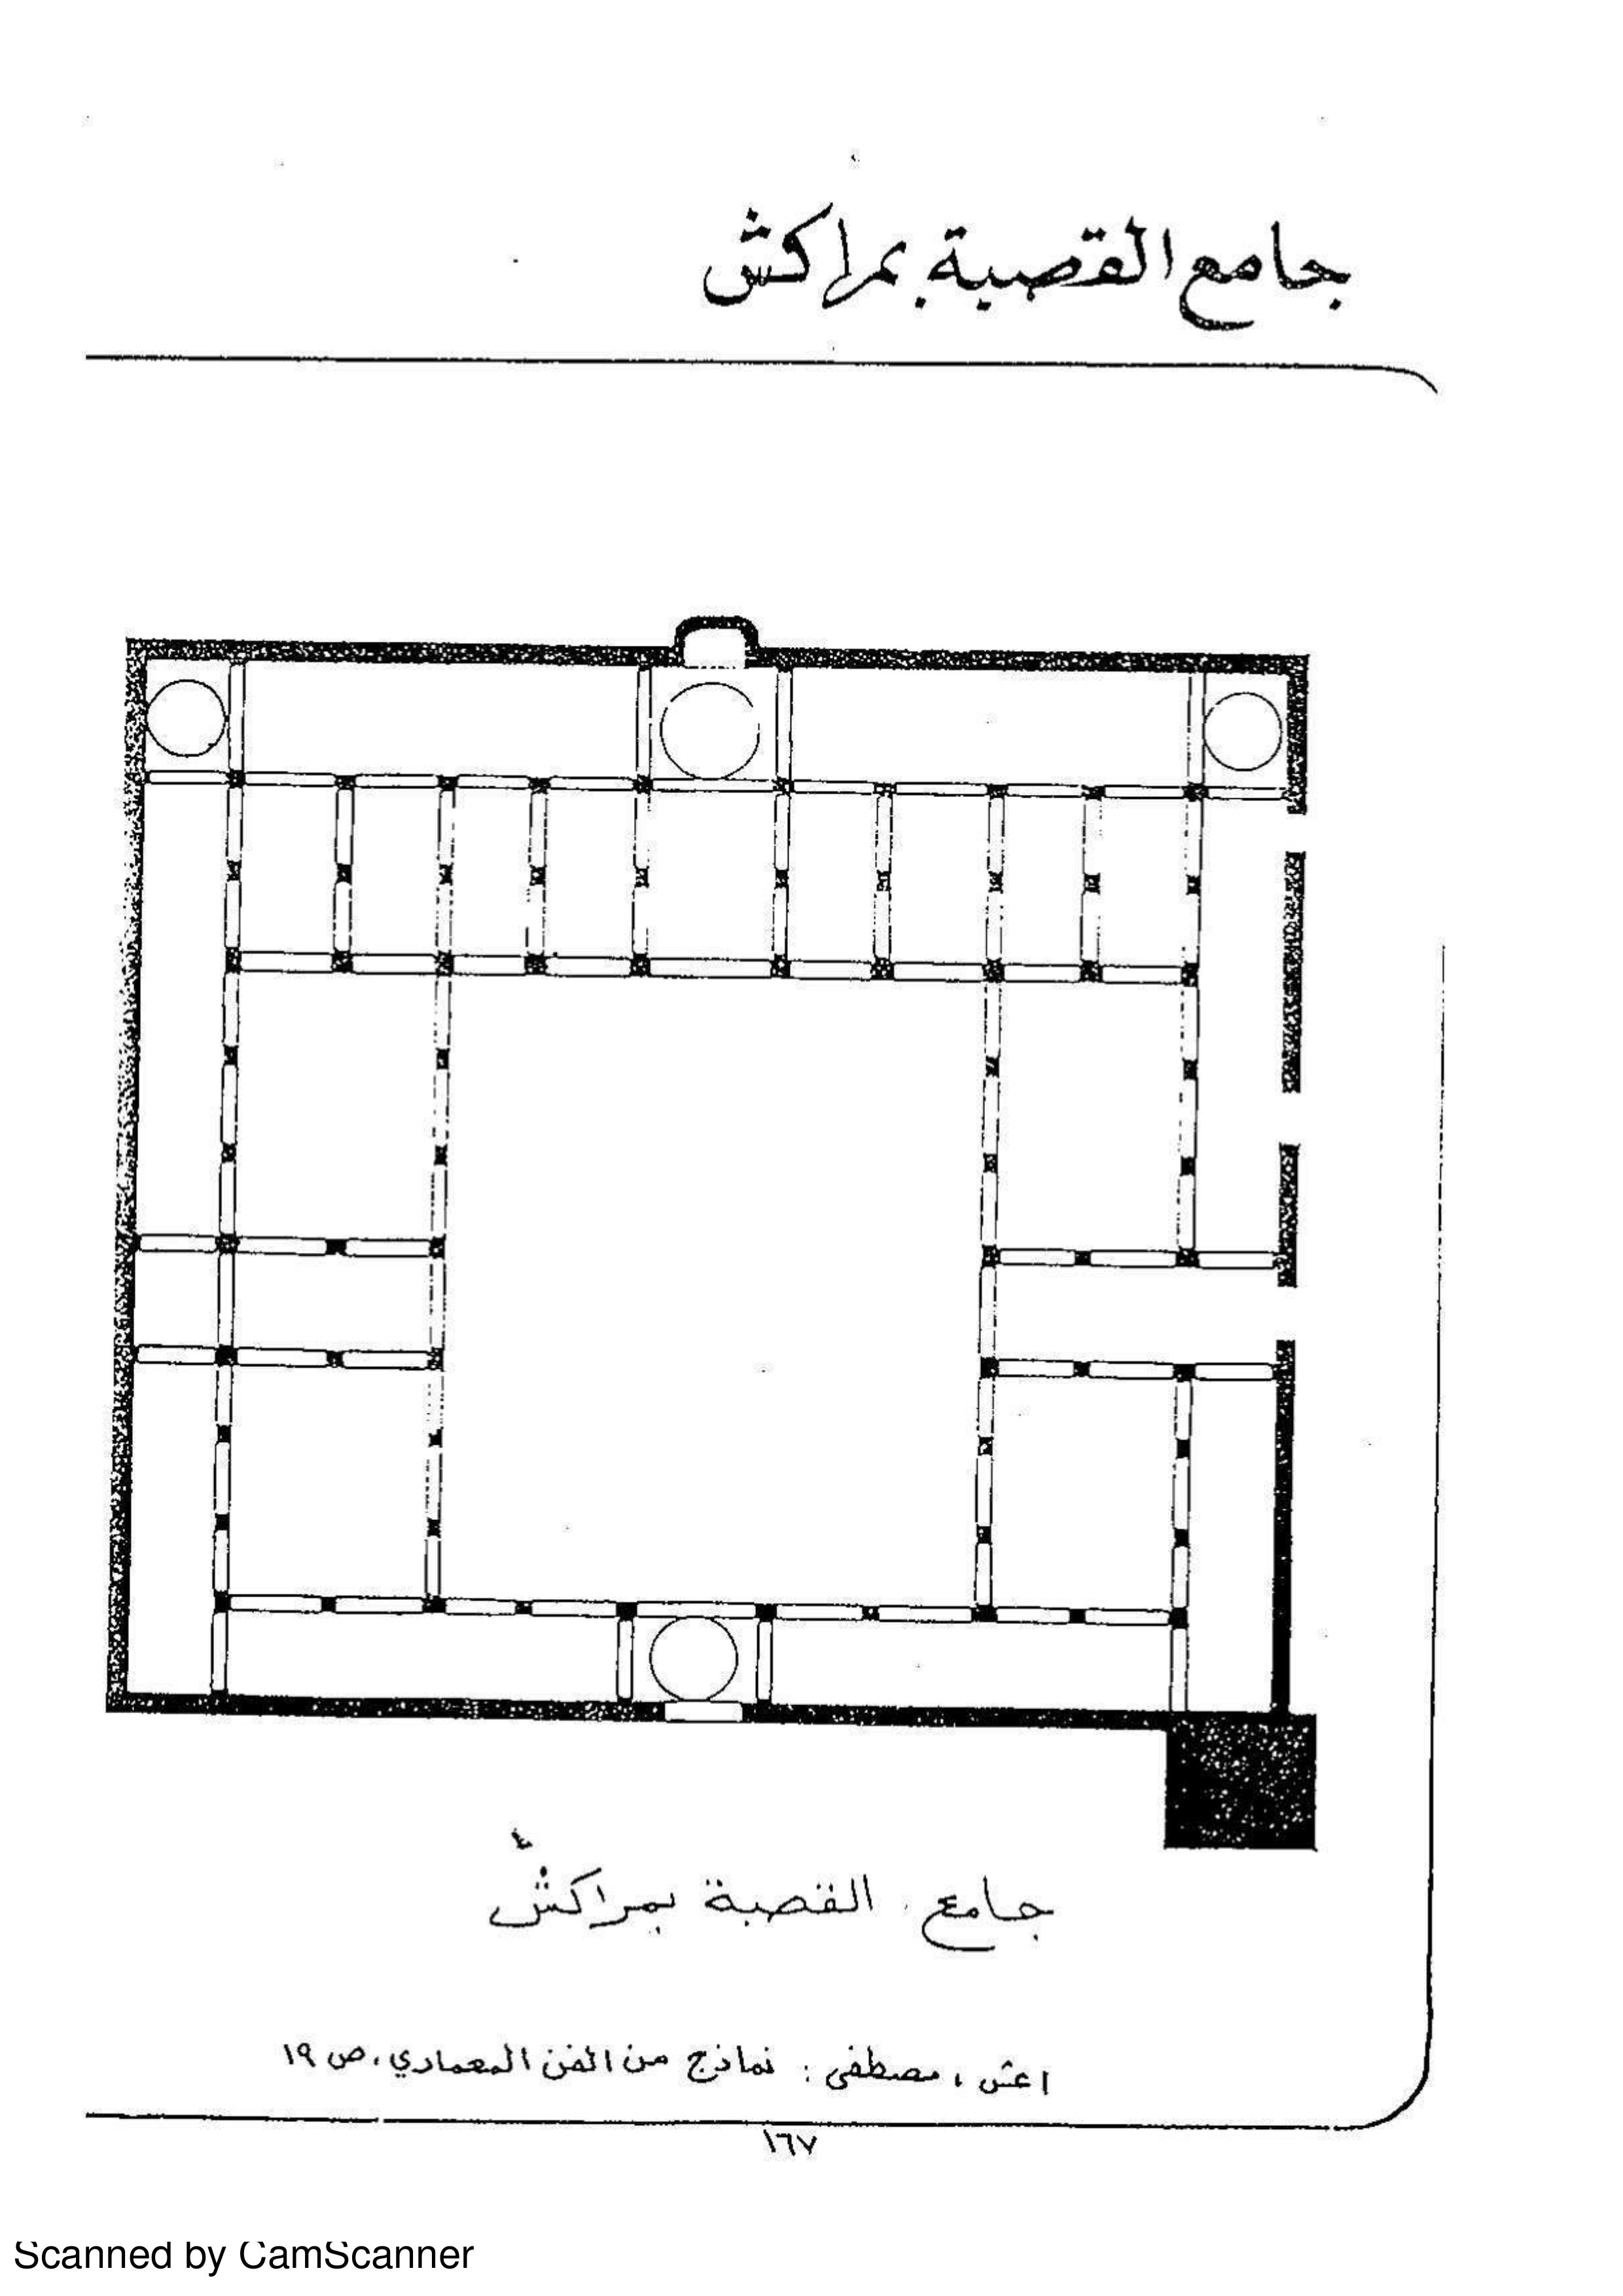 جامع القصبة بمراكش
جامع القصبة بمراكش
اعش، مصطفى: نماذج من الفن المعماري، ص ١٩
١٦٧
Scanned by CamScanner